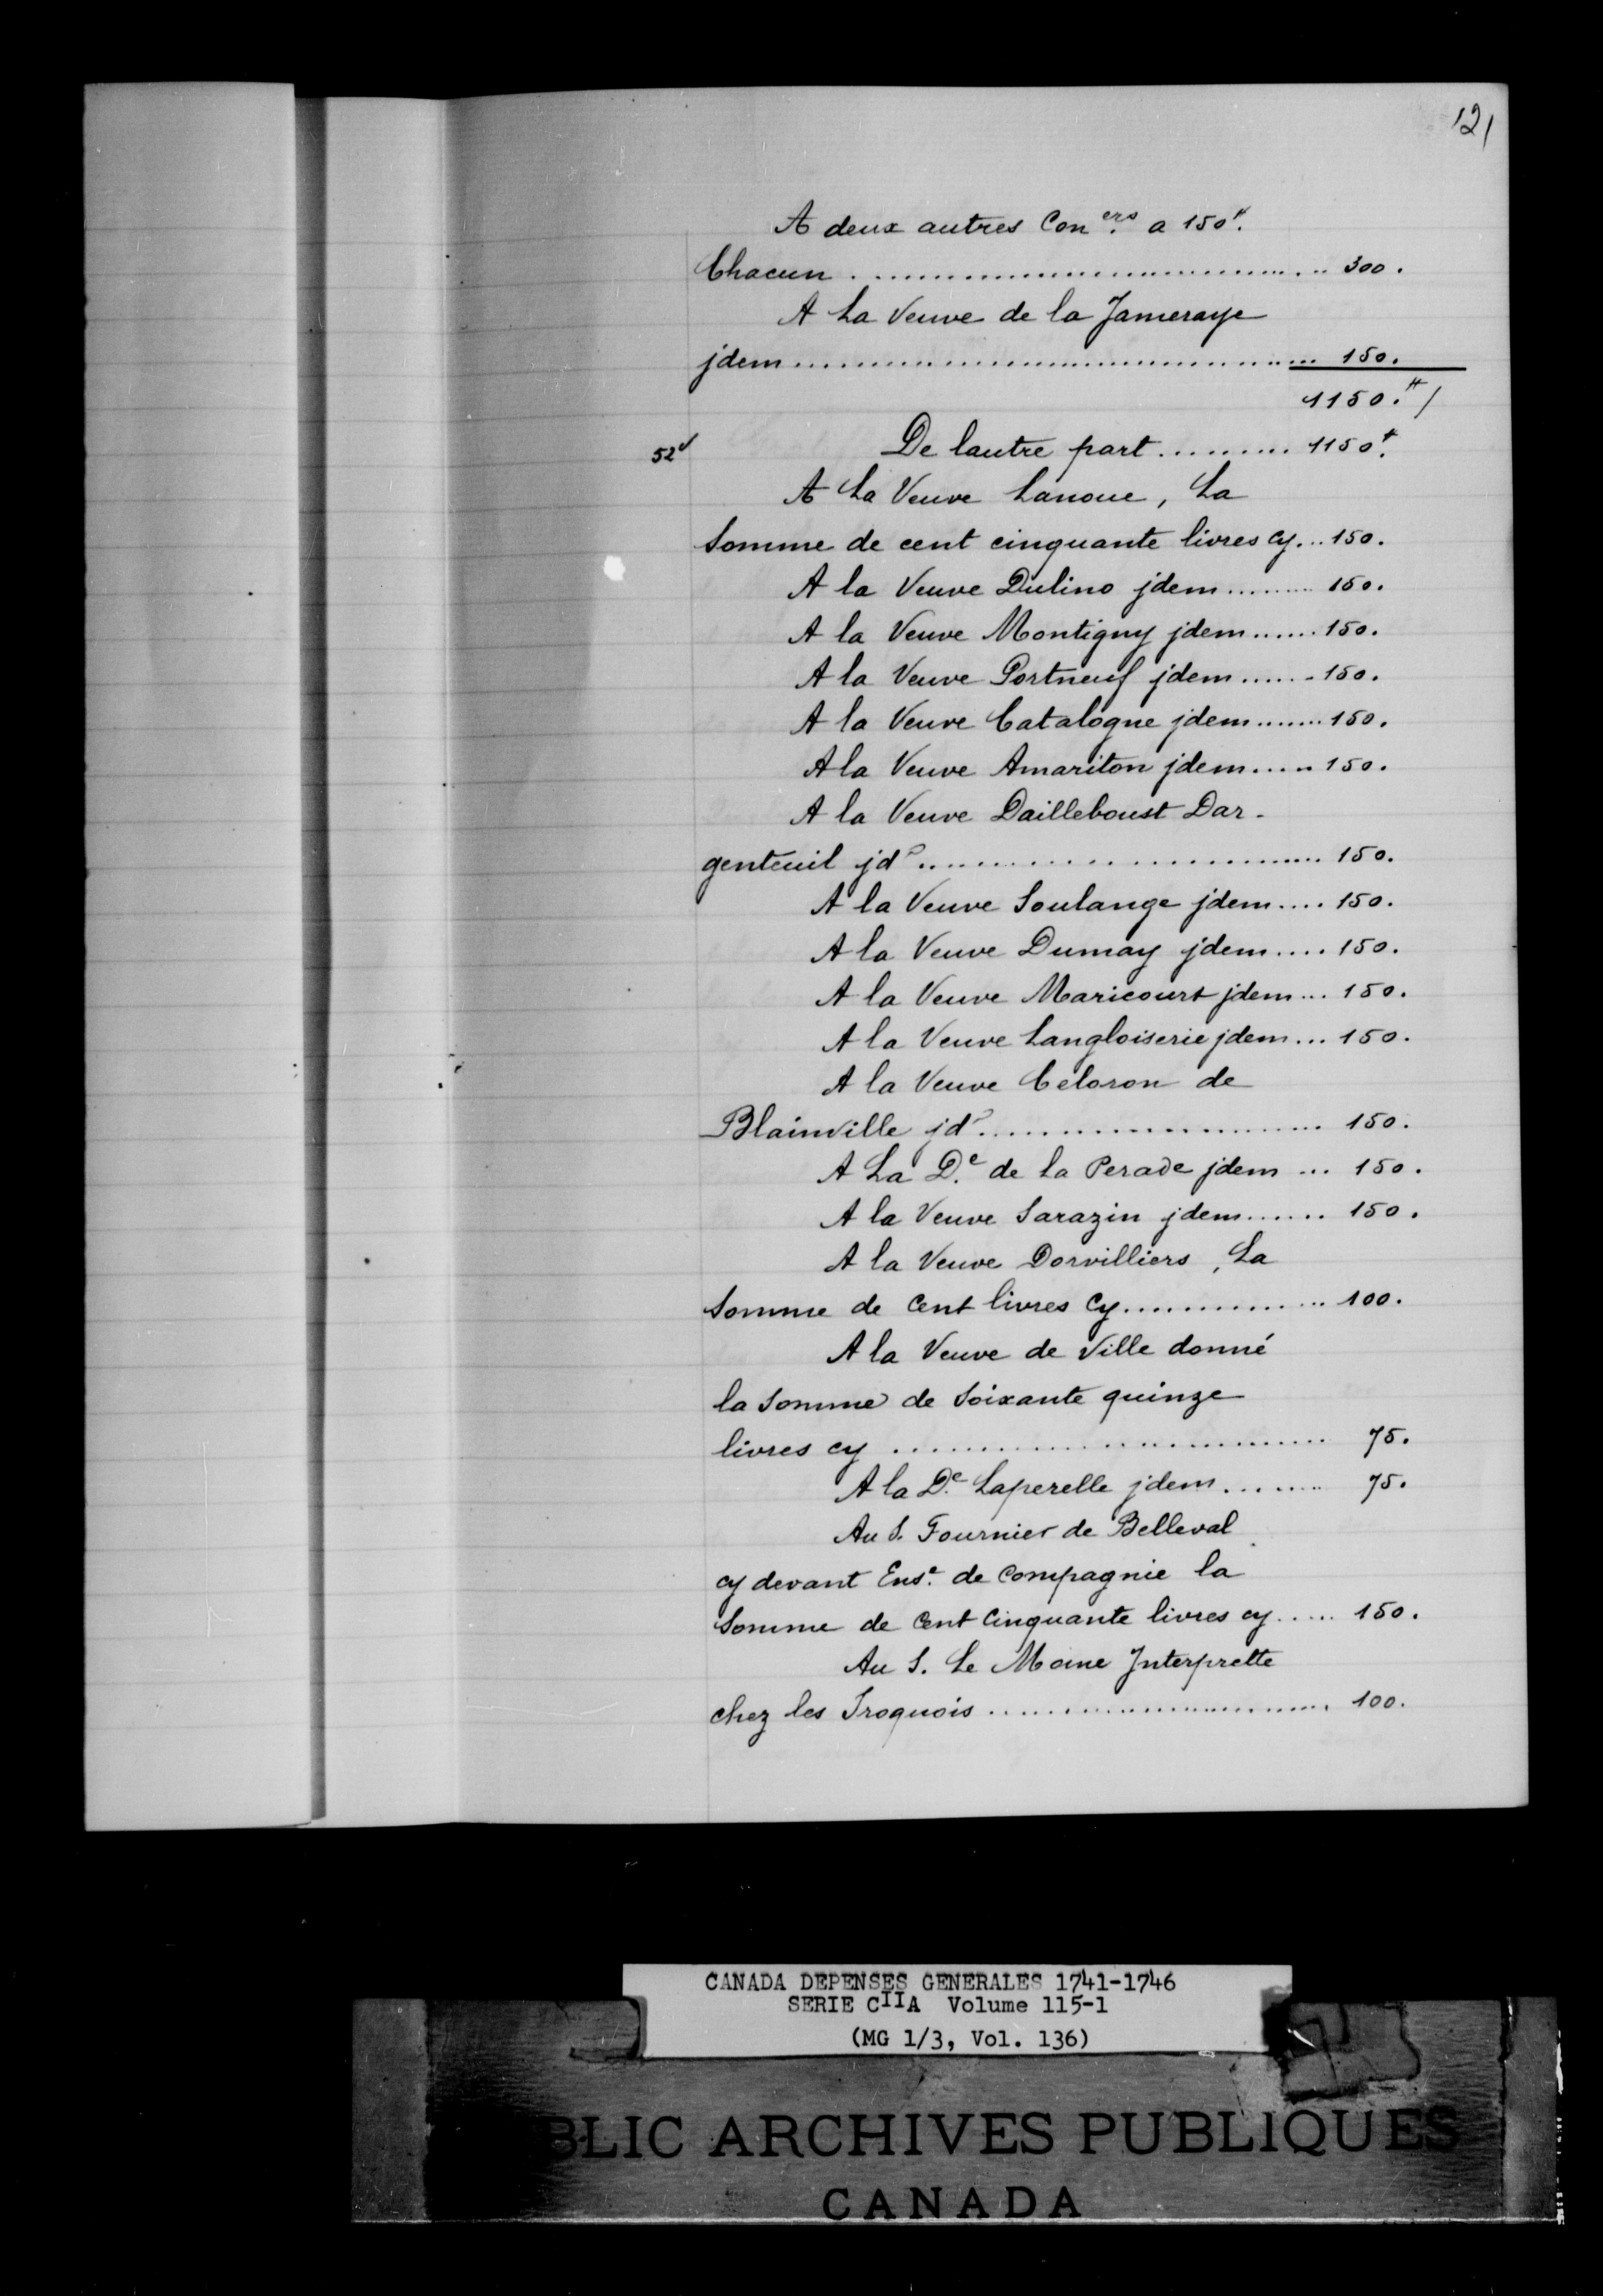 121
A deux autres Con.ers a 150tt.
Chacun .......... 300.
A La Veuve de la Jameraye
jdem .......... 150.
1150.tt /
52
De lautre part .......... 1150tt.
A La Veuve Lanoue, La
Somme de cent cinquante livres cy... 150.
A la Veuve Dulino jdem ......... 150.
A la Veuve Montigny jdem ...... 150.
A la Veuve Portneuf jdem ...... 150.
A la Veuve Catalogne jdem ....... 150.
A la Veuve Amariton jdem ..... 150.
A la Veuve Dailleboust Dar-
genteuil jd .......... 150.
A la Veuve Soulange jdem .... 150.
A la Veuve Dumay jdem .... 150.
A la Veuve Maricourt jdem ... 150.
A la Veuve Langloiserie jdem ... 150.
A la Veuve Celoron de
Blainville jd .......... 150.
A La D.e de la Perade jdem ... 150.
A la Veuve Sarazin jdem ...... 150.
A la Veuve Dorvilliers, La
Somme de Cent livres Cy .......... 100.
A la Veuve de Ville donné
la Somme de Soixante quinze
livres cy .......... 75.
A la D.e Laperelle jdem ........ 75.
Au S. Fournier de Belleval
cy devant Ens.e de Compagnie la
Somme de Cent Cinquante livres cy ..... 150.
Au S. Le Moine Jnterprette
chez les Iroquois .......... 100.
CANADA DEPENSES GENERALES 1741-1746
SERIE CIIA Volume 115-1
(MG 1/3, Vol. 136)
BLIC ARCHIVES PUBLIQUES
CANADA